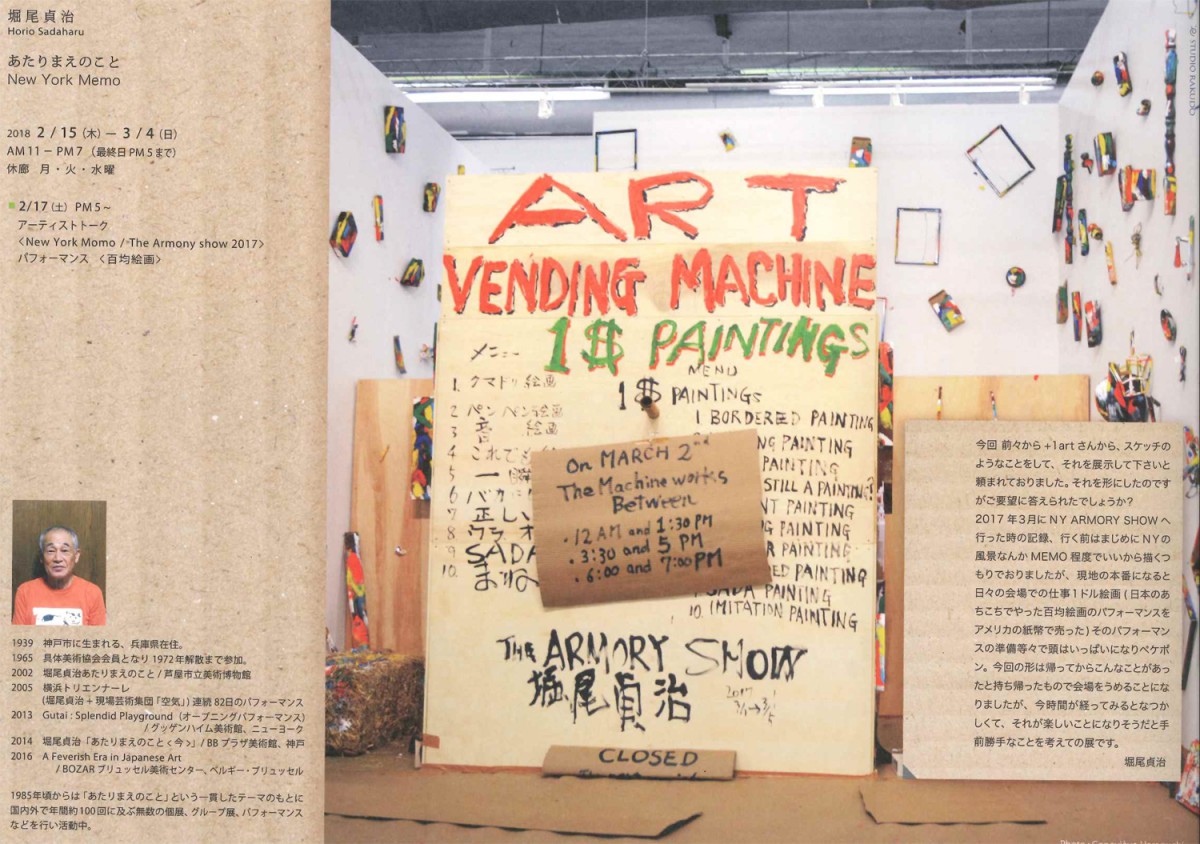 堀尾貞治
Horio Sadaharu
あたりまえのこと
New York Memo
2018 2/15（木）— 3/4（日）
AM11－PM7（最終日PM5まで）
休廊 月・火・水曜
2/17（土） PM5～
アーティストトーク
〈New York Momo / The Armony show 2017〉
パフォーマンス 〈百均絵画〉
1939 神戸市に生まれる、兵庫県在住。
1965 具体美術協会会員となり1972年解散まで参加。
2002 堀尾貞治あたりまえのこと / 芦屋市立美術博物館
2005 横浜トリエンナーレ
(堀尾貞治＋現場芸術集団「空気」) 連続 82日のパフォーマンス
2013 Gutai : Splendid Playground（オープニングパフォーマンス）
/ グッゲンハイム美術館、ニューヨーク
2014 堀尾貞治「あたりまえのこと〈今〉」/ BB プラザ美術館、神戸
2016 A Feverish Era in Japanese Art
/ BOZAR ブリュッセル美術センター、ベルギー・ブリュッセル
1985年頃からは「あたりまえのこと」という一貫したテーマのもとに
国内外で年間約100回に及ぶ無数の個展、グループ展、パフォーマンス
などを行い活動中。
ART
VENDING MACHINE
1$ PAINTINGS
メニュー
1. クマドリ絵画
2 ペンペン絵画
3 音 絵画
4 これでも
5 一瞬
6 バカに
7 正しい
8 ウラオ
9 SADA
10. まね
MENU
1$ PAINTINGS
1 BORDERED PAINTING
NG PAINTING
PAINTING
STILL A PAINTING?
NT PAINTING
G PAINTING
R PAINTING
ED PAINTING
SADA PAINTING
10. IMITATION PAINTING
On MARCH 2nd
The Machine works
Between
・12 AM and 1:30 PM
・3:30 and 5 PM
・6:00 and 7:00 PM
THE ARMORY SHOW
堀尾貞治
2017
3/1→3/5
CLOSED
今回 前々から +1art さんから、スケッチの
ようなことをして、それを展示して下さいと
頼まれておりました。それを形にしたのです
がご要望に答えられたでしょうか？
2017年3月に NY ARMORY SHOW へ
行った時の記録、行く前ははじめに NY の
風景なんか MEMO 程度でいいから描くつ
もりでおりましたが、現地の本番になると
日々の会場での仕事1ドル絵画 (日本のあ
ちこちでやった百均絵画のパフォーマンスを
アメリカの紙幣で売った) そのパフォーマン
スの準備等々で頭はいっぱいになりペケポ
ン。今回の形は帰ってからこんなことがあっ
たと持ち帰ったもので会場をうめることにな
りましたが、今時間が経ってみるとなつか
しくて、それが楽しいことになりそうだと手
前勝手なことを考えての展です。
堀尾貞治